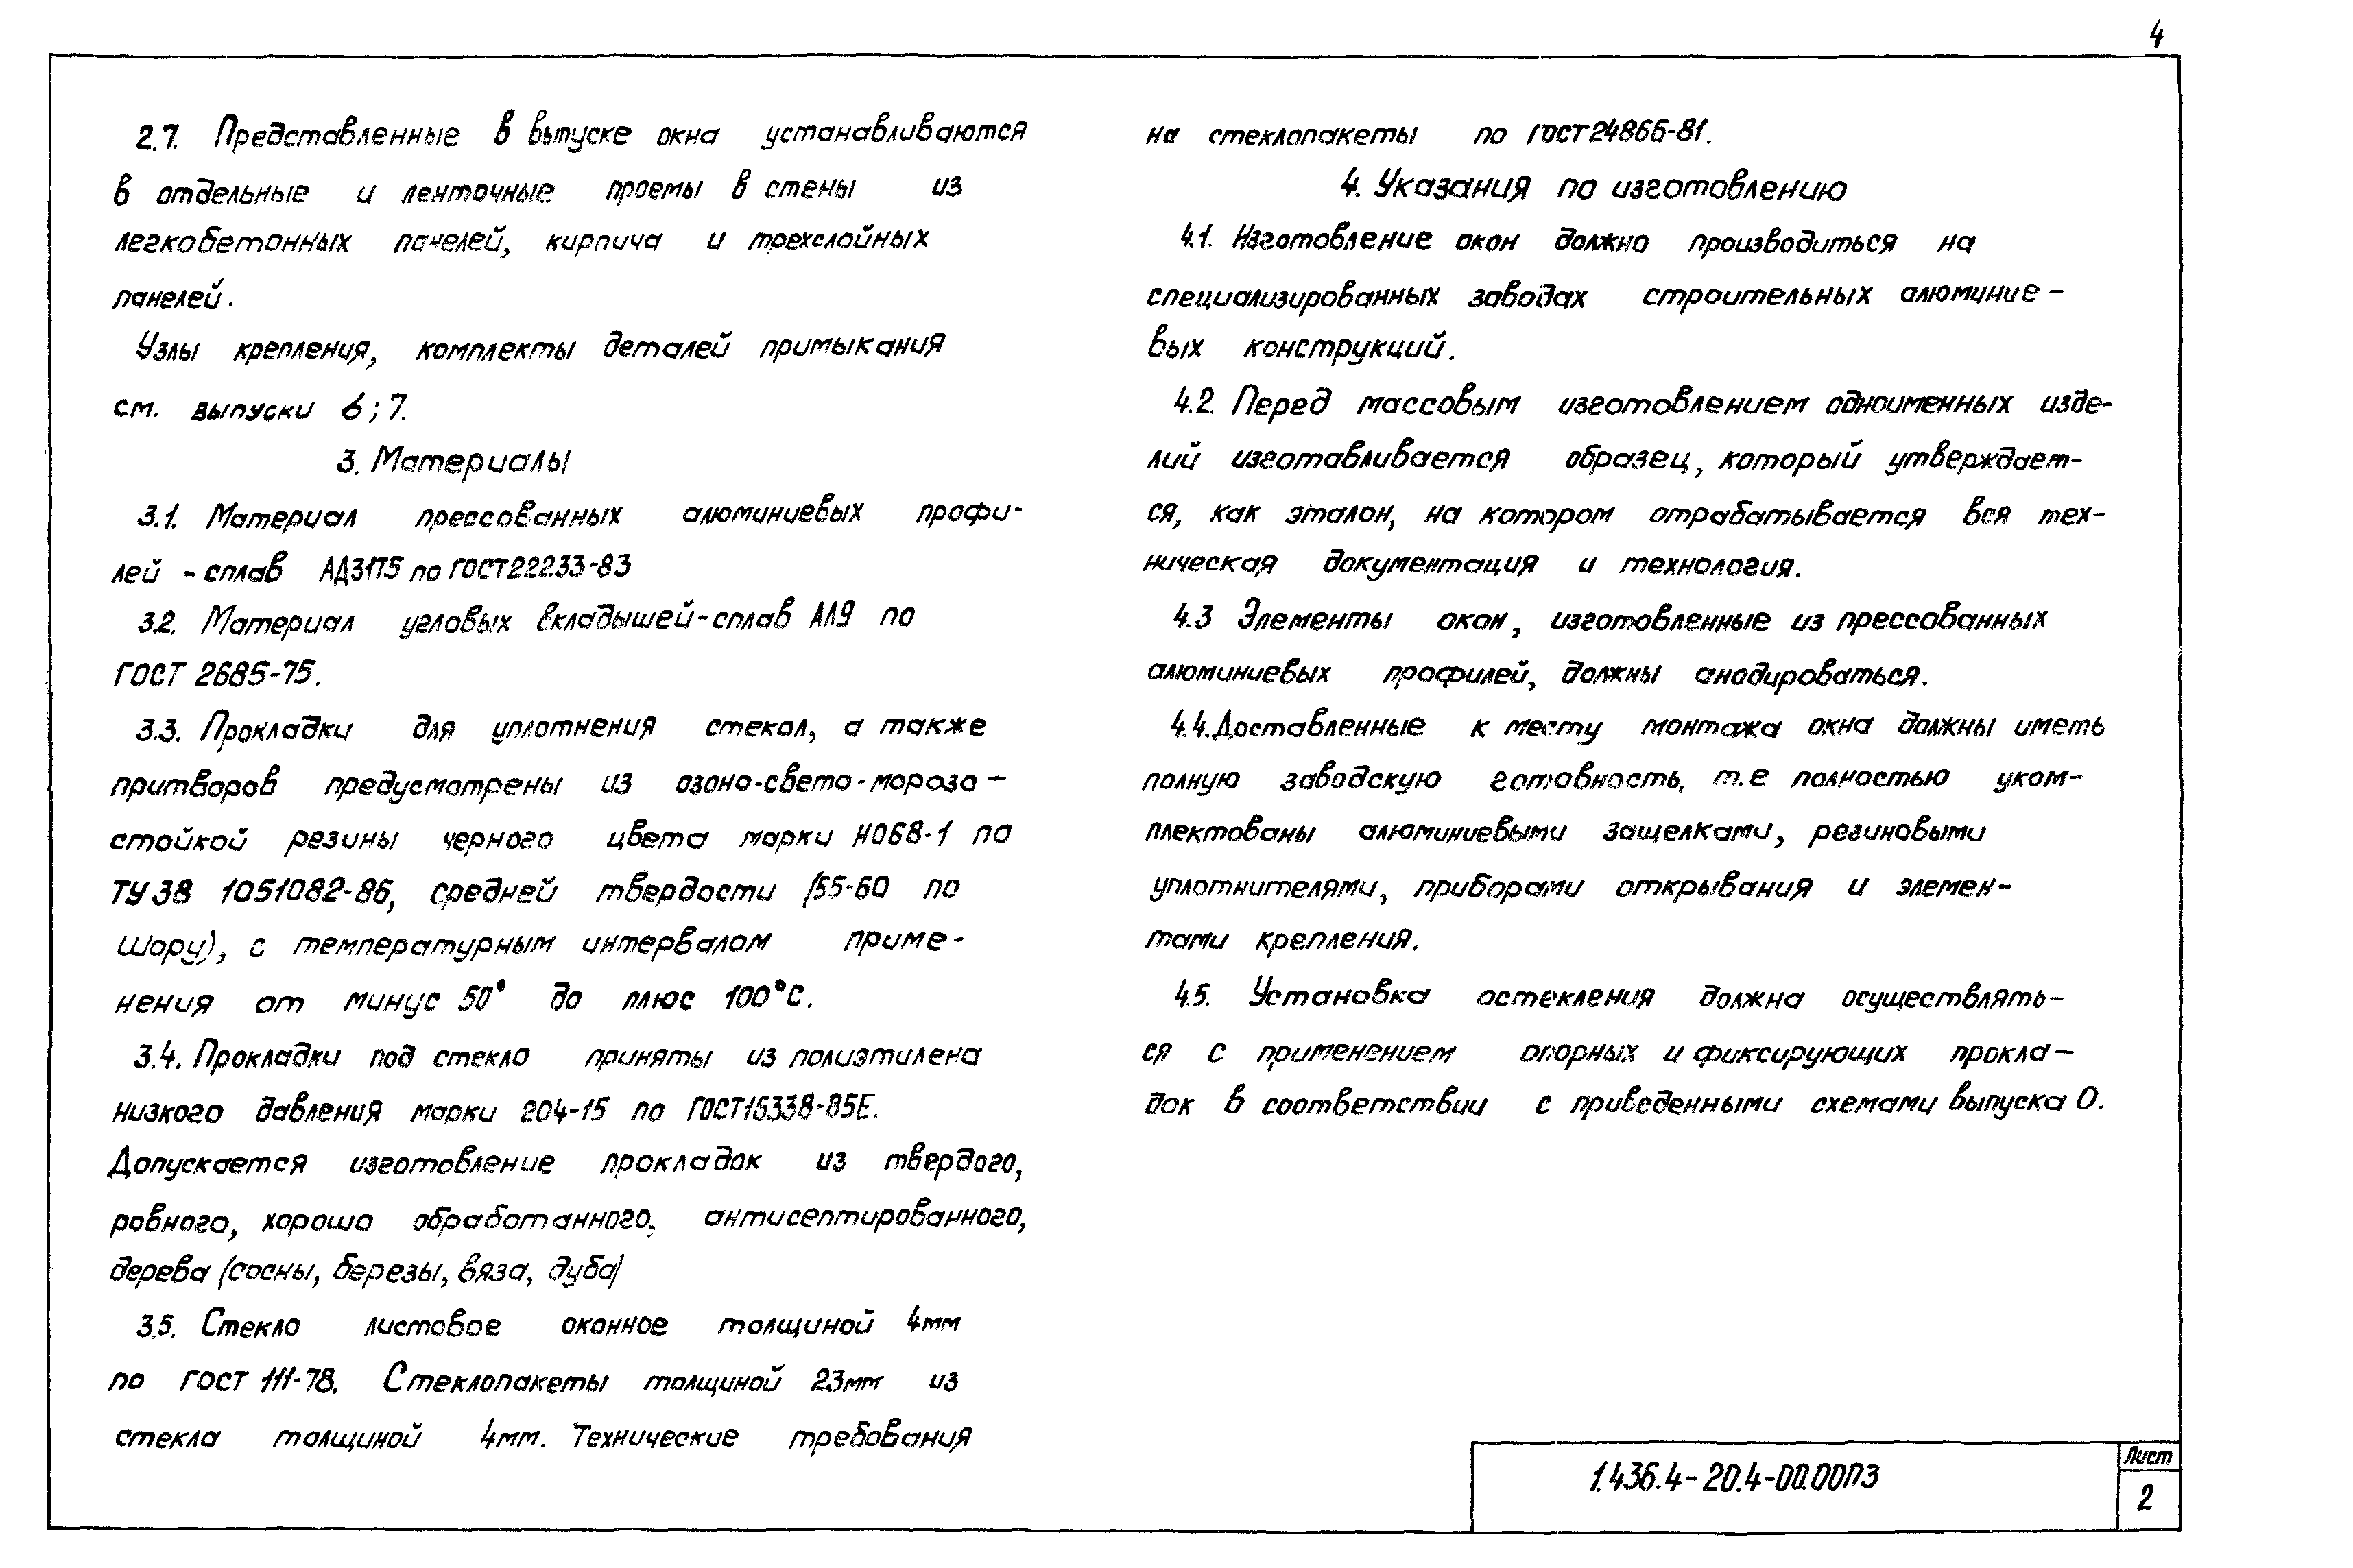 4
2.7. Представленные в выпуске окна устанавливаются
в отдельные и ленточные проемы в стены из
легкобетонных панелей, кирпича и трехслойных
панелей.
Узлы крепления, комплекты деталей примыкания
см. выпуски 6; 7.
3. Материалы
3.1. Материал прессованных алюминиевых профи-
лей - сплав АД31Т5 по ГОСТ22233-83
3.2. Материал угловых вкладышей-сплав АЛ9 по
ГОСТ 2685-75.
3.3. Прокладки для уплотнения стекол, а также
притворов предусмотрены из озоно-свето-морозо-
стойкой резины черного цвета марки НО68-1 по
ТУ 38 1051082-86, средней твердости (55-60 по
Шору), с температурным интервалом приме-
нения от минус 50° до плюс 100°С.
3.4. Прокладки под стекло приняты из полиэтилена
низкого давления марки 204-15 по ГОСТ16338-85Е.
Допускается изготовление прокладок из твердого,
ровного, хорошо обработанного, антисептированного,
дерева (сосны, березы, вяза, дуба)
3.5. Стекло листовое оконное толщиной 4мм
по ГОСТ 111-78. Стеклопакеты толщиной 23мм из
стекла толщиной 4мм. Технические требования
на стеклопакеты по ГОСТ24866-81.
4. Указания по изготовлению
4.1. Изготовление окон должно производиться на
специализированных заводах строительных алюминие-
вых конструкций.
4.2. Перед массовым изготовлением одноименных изде-
лий изготавливается образец, который утверждает-
ся, как эталон, на котором отрабатывается вся тех-
ническая документация и технология.
4.3 Элементы окон, изготовленные из прессованных
алюминиевых профилей, должны анодироваться.
4.4. Доставленные к месту монтажа окна должны иметь
полную заводскую готовность, т.е полностью уком-
плектованы алюминиевыми защелками, резиновыми
уплотнителями, приборами открывания и элемен-
тами крепления.
4.5. Установка остекления должна осуществлять-
ся с применением опорных и фиксирующих прокла-
док в соответствии с приведенными схемами выпуска 0.
1.436.4-20.4-00.00ПЗ
Лист
2